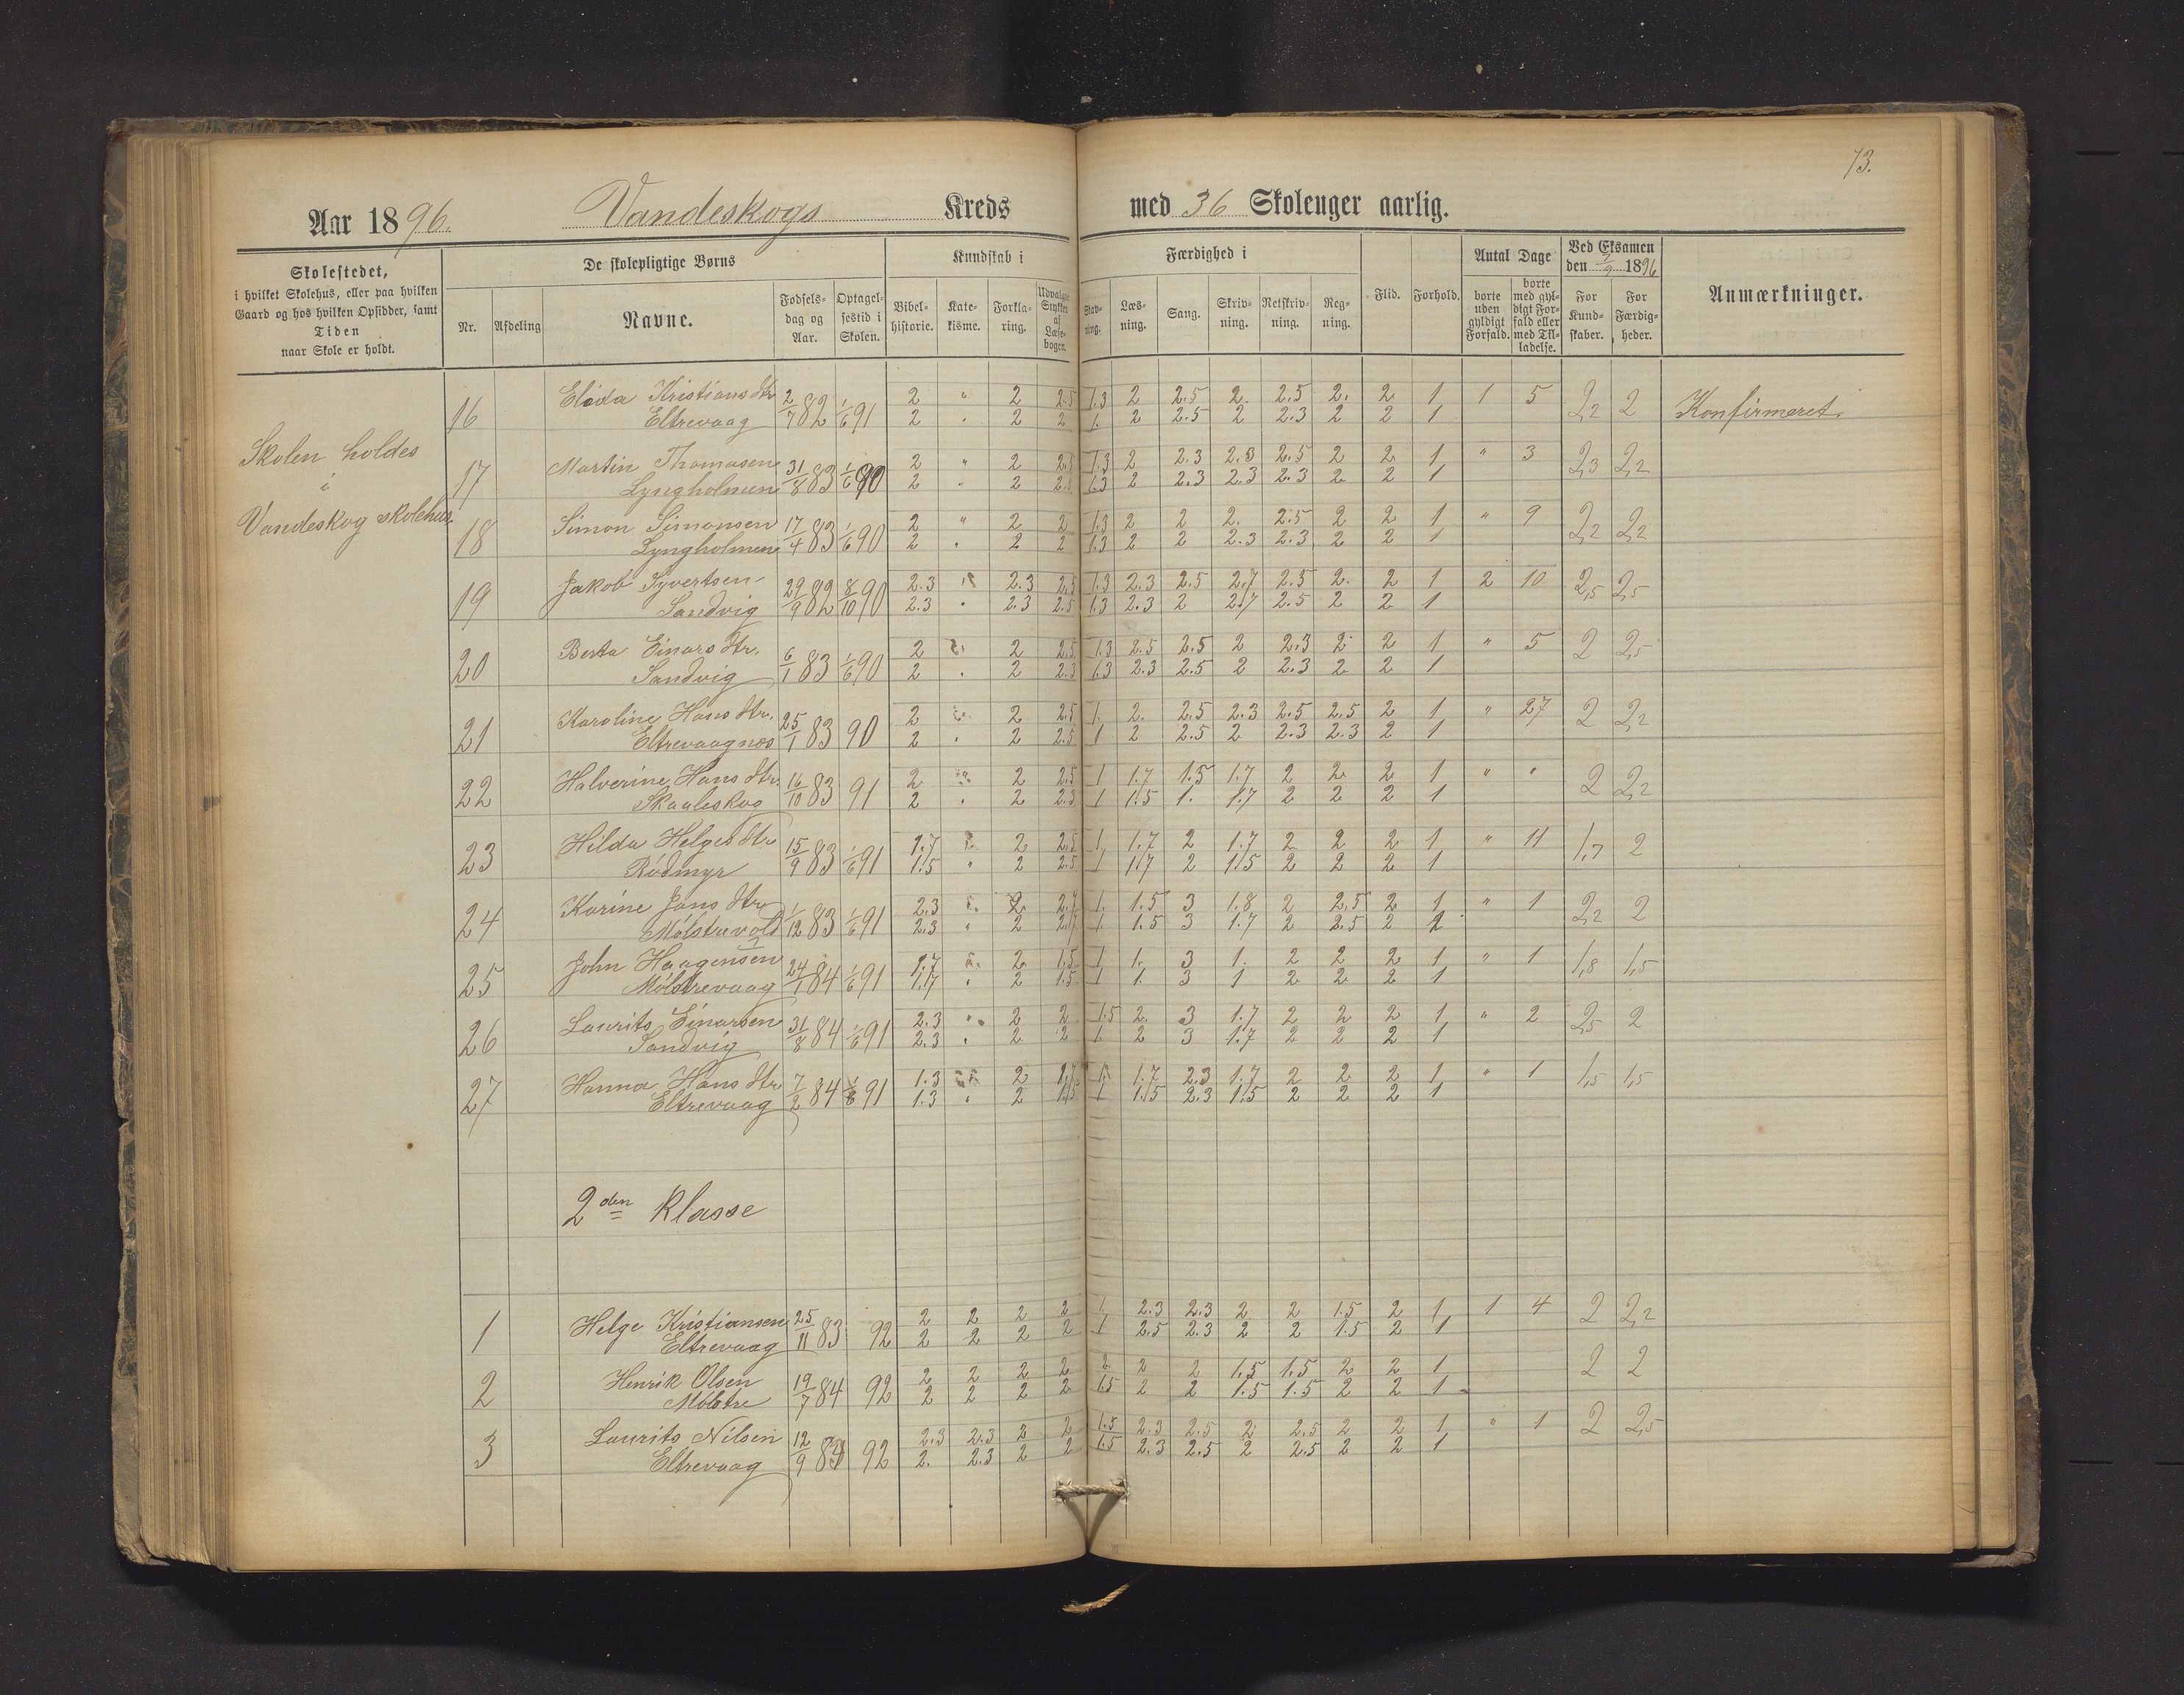 73.
Aar 1896. Vandeskogs Kreds med 36 Skoleuger aarlig.
Skolestedet, i hvilket Skolehus, eller paa hvilken Gaard og hos hvilken Opsidder, samt Tiden naar Skole er holdt.
De skolepligtige Børns
Nr. Afdeling Navne. Fødsels-dag og Aar. Optagel-sestid i Skolen.
Kundskab i
Bibel-historie. Kate-kisme. Forkla-ring. Udvalgte Stykker af Læse-bogen.
Færdighed i
Stav-ning. Læs-ning. Sang. Skriv-ning. Retskriv-ning. Reg-ning.
Flid. Forhold.
Antal Dage
borte uden gyldigt Forfald. borte med gyl-digt For-fald eller med Til-ladelse.
Ved Eksamen den 7/9 1896
For Kund-skaber. For Færdig-heder.
Anmærkninger.
Skolen holdes
i
Vandeskog skolehus.
16 Elida Kristians dtr 2/7 82 1/6 91 2 " 2 2.5 1.3 2 2.5 2. 2.5 2. 2 1 1 5 2,2 2 Konfirmeret.
Eltrevaag 2 . 2 2 1. 2 2.5 2 2.3 2 2 1
17 Martin Thomasen 31/8 83 1/6 90 2 " 2 2.3 1.3 2 2.3 2.3 2.5 2 2 1 " 3 2,3 2,2
Lyngholmen 2 . 2 2.3 1.3 2 2.3 2.3 2.3 2 2 1
18 Simon Simonsen 17/4 83 1/6 90 2 " 2 2 1.3 2 2 2. 2.5 2 2 1 " 9 2,2 2,2
Lyngholmen 2 . 2 2 1.3 2 2 2.3 2.3 2 2 1
19 Jakob Syvertsen 29/9 82 8/10 90 2.3 " 2.3 2.5 1.3 2.3 2.5 2.7 2.5 2. 2 1 2 10 2,5 2,5
Sandvig 2.3 . 2.3 2.5 1.3 2.3 2 2.7 2.5 2 2 1
20 Berta Einars dtr. 6/1 83 1/6 90 2 2 2.5 1.3 2.5 2.5 2 2.3 2 2 1 " 5 2 2,5
Sandvig 2 . 2 2.3 1.3 2.3 2.5 2 2.3 2 2 1
21 Karoline Hans dtr. 25/1 83 90 2 2 2.5 1. 2. 2.5 2.3 2.5 2.5 2 1 " 27 2 2,2
Eltrevaagnes 2 . 2 2.5 1 2 2.5 2 2.3 2.3 2 1
22 Halverine Hans dtr. 16/10 83 91 2 2 2.5 1 1.7 1.5 1.7 2 2 2 1 " " 2 2,2
Skaaleskog 2 . 2 2.3 1 1.5 1. 1.7 2 2 2 1
23 Hilda Helges dtr 15/9 83 1/6 91 1.7 2 2.5 1, 1.7 2 1.7 2 2 2 1 " 11 1,7 2
Rødmyr 1.5 " 2 2.5 1 1.7 2 1.5 2 2 2 1
24 Karine Jans dtr 1/12 83 1/6 91 2.3 2 2.7 1. 1.5 3 1.8 2 2.5 2 1 " 1 2,2 2
Mølstrevold 2.3 " 2 2.7 1. 1.5 3 1.7 2 2.5 2 1
25 John Haagensen 24/1 84 1/6 91 1.7 2 1.5 1 1. 3 1. 2 2 2 1 " 1 1,8 1,5
Mølstrevaag 1.7 . 2 1.5 1 1. 3 1 2 2 2 1
26 Laurits Einarsen 31/8 84 1/6 91 2.3 " 2 2 1.5 2. 3 1.7 2 2 2 1 " 2 2,5 2
Sandvig 2.3 . 2 2 1. 2 3 1.7 2 2 2 1
27 Hanna Hans dtr 7/2 84 1/6 91 1.3 2 1.7 1. 1.7 2.3 1.7 2 2 2 1 " 1 1,5 1,5
Eltrevaag 1.3 . 2 1.5 1 1.5 2.3 1.5 2 2 2 1
2den Klasse
1 Helge Kristiansen 25/11 83 92 2 2 2 2 1. 2.3 2.3 2 2 1.5 2 1 1 4 2 2,2
Eltrevaag 2 2 2 2 1 2.5 2.3 2 2 1.5 2 1
2 Henrik Olsen 19/7 84 92 2 2 2 2 2 2 2 1.5 1.5 2 2 1 2 2
Mølstre 2 2 2 2 1.5 2 2 1.5 1.5 2 2 1
3 Laurits Nilsen 12/9 84 92 2.3 2.3 2 2 1.5 2.3 2.5 2 2.5 2 2 1 " 1 2 2,5
Eltrevaag 2. 2.3 2 2 1.5 2.3 2.5 2 2.5 2 2 1